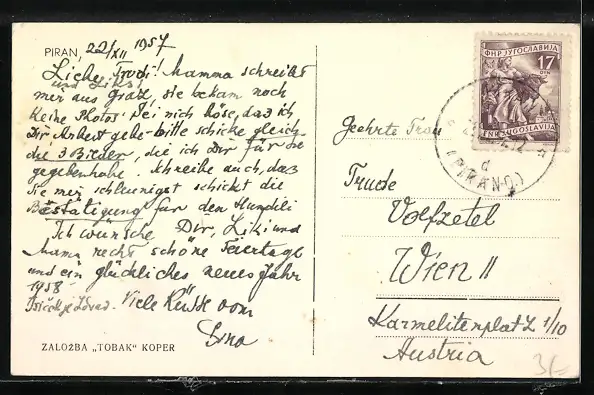 PIRAN, 22/XII 1957
Liebe Trudi! Mamma schreibt
und Likis!
mir aus Graz, sie bekam noch
keine Photos. Sei mich böse, daß ich
Dir Arbeit gebe - bitte schicke gleich
die 3 Bilder, die ich Dir für sie
gegeben habe. Schreibe auch, daß
Sie mir schleunigst schickt die
Bestätigung für den Hundli
Ich wünsche Dir, Liki und
Mama recht schöne Feiertage
und ein glückliches neues Jahr
1958
Viele Küsse vom
ZALOŽBA „TOBAK" KOPER
ФНР ЈУГОСЛАВИЈА
17
DIN
FNR JUGOSLAVIJA
d
(PIRANO)
Geehrte Frau
Trude
Volfzetel
Wien II
Karmelitenplatz 1/10
Austria
3/-